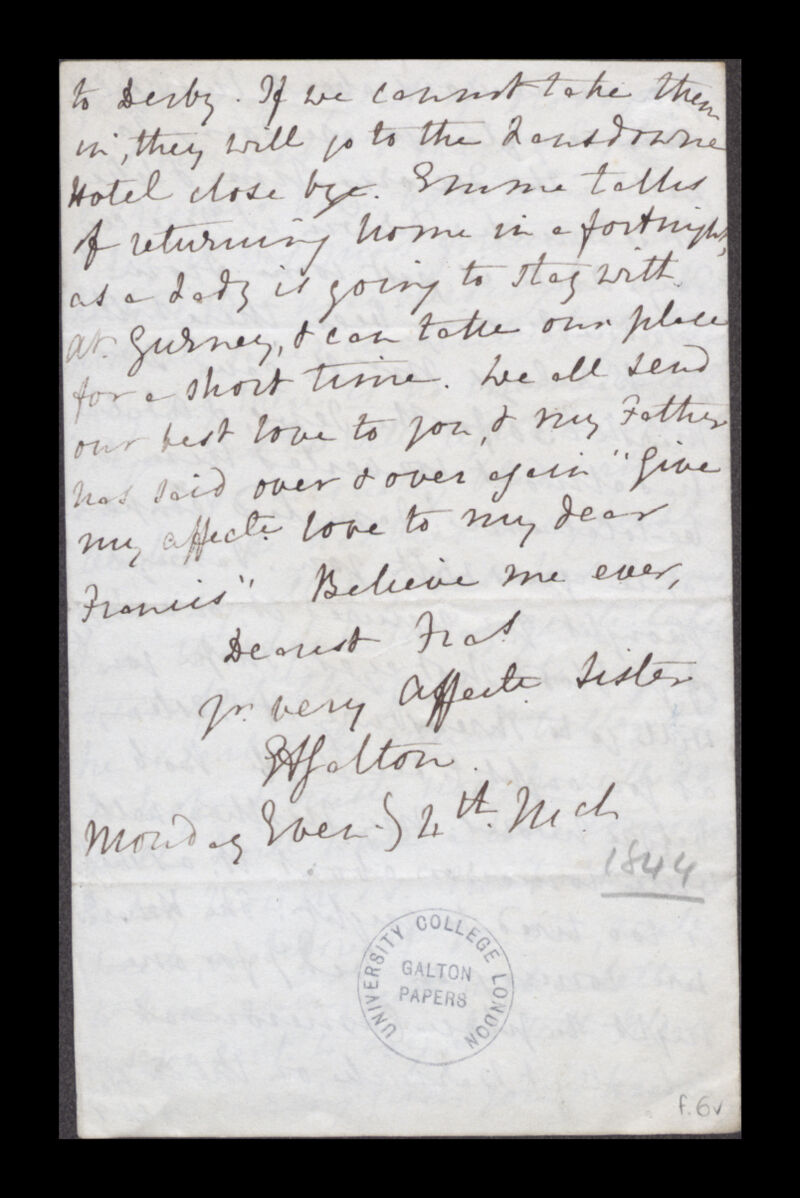 to Derby. If we cannot take them
in, they will go to the Lansdowne
Hotel close bye. Emma talks
of returning home in a fortnight,
as a Lady is going to stay with
At. Gurney, & can take our place
for a short time. We all send
our best love to you, & my Father
has said over & over again "Give
my affecte. love to my dear
Francis" Believe me ever,
Dearest Fras
yr. very affecte. Sister
EAGalton.
Monday Even.) 4th. Mch
1844
UNIVERSITY COLLEGE LONDON
GALTON
PAPERS
f.6v